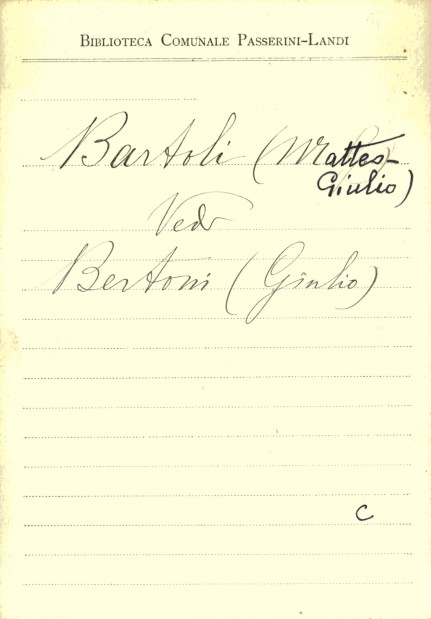 BIBLIOTECA COMUNALE PASSERINI-LANDI
Bartoli (Matteo-
Giulio)
Vedi
Bertoni (Giulio)
C